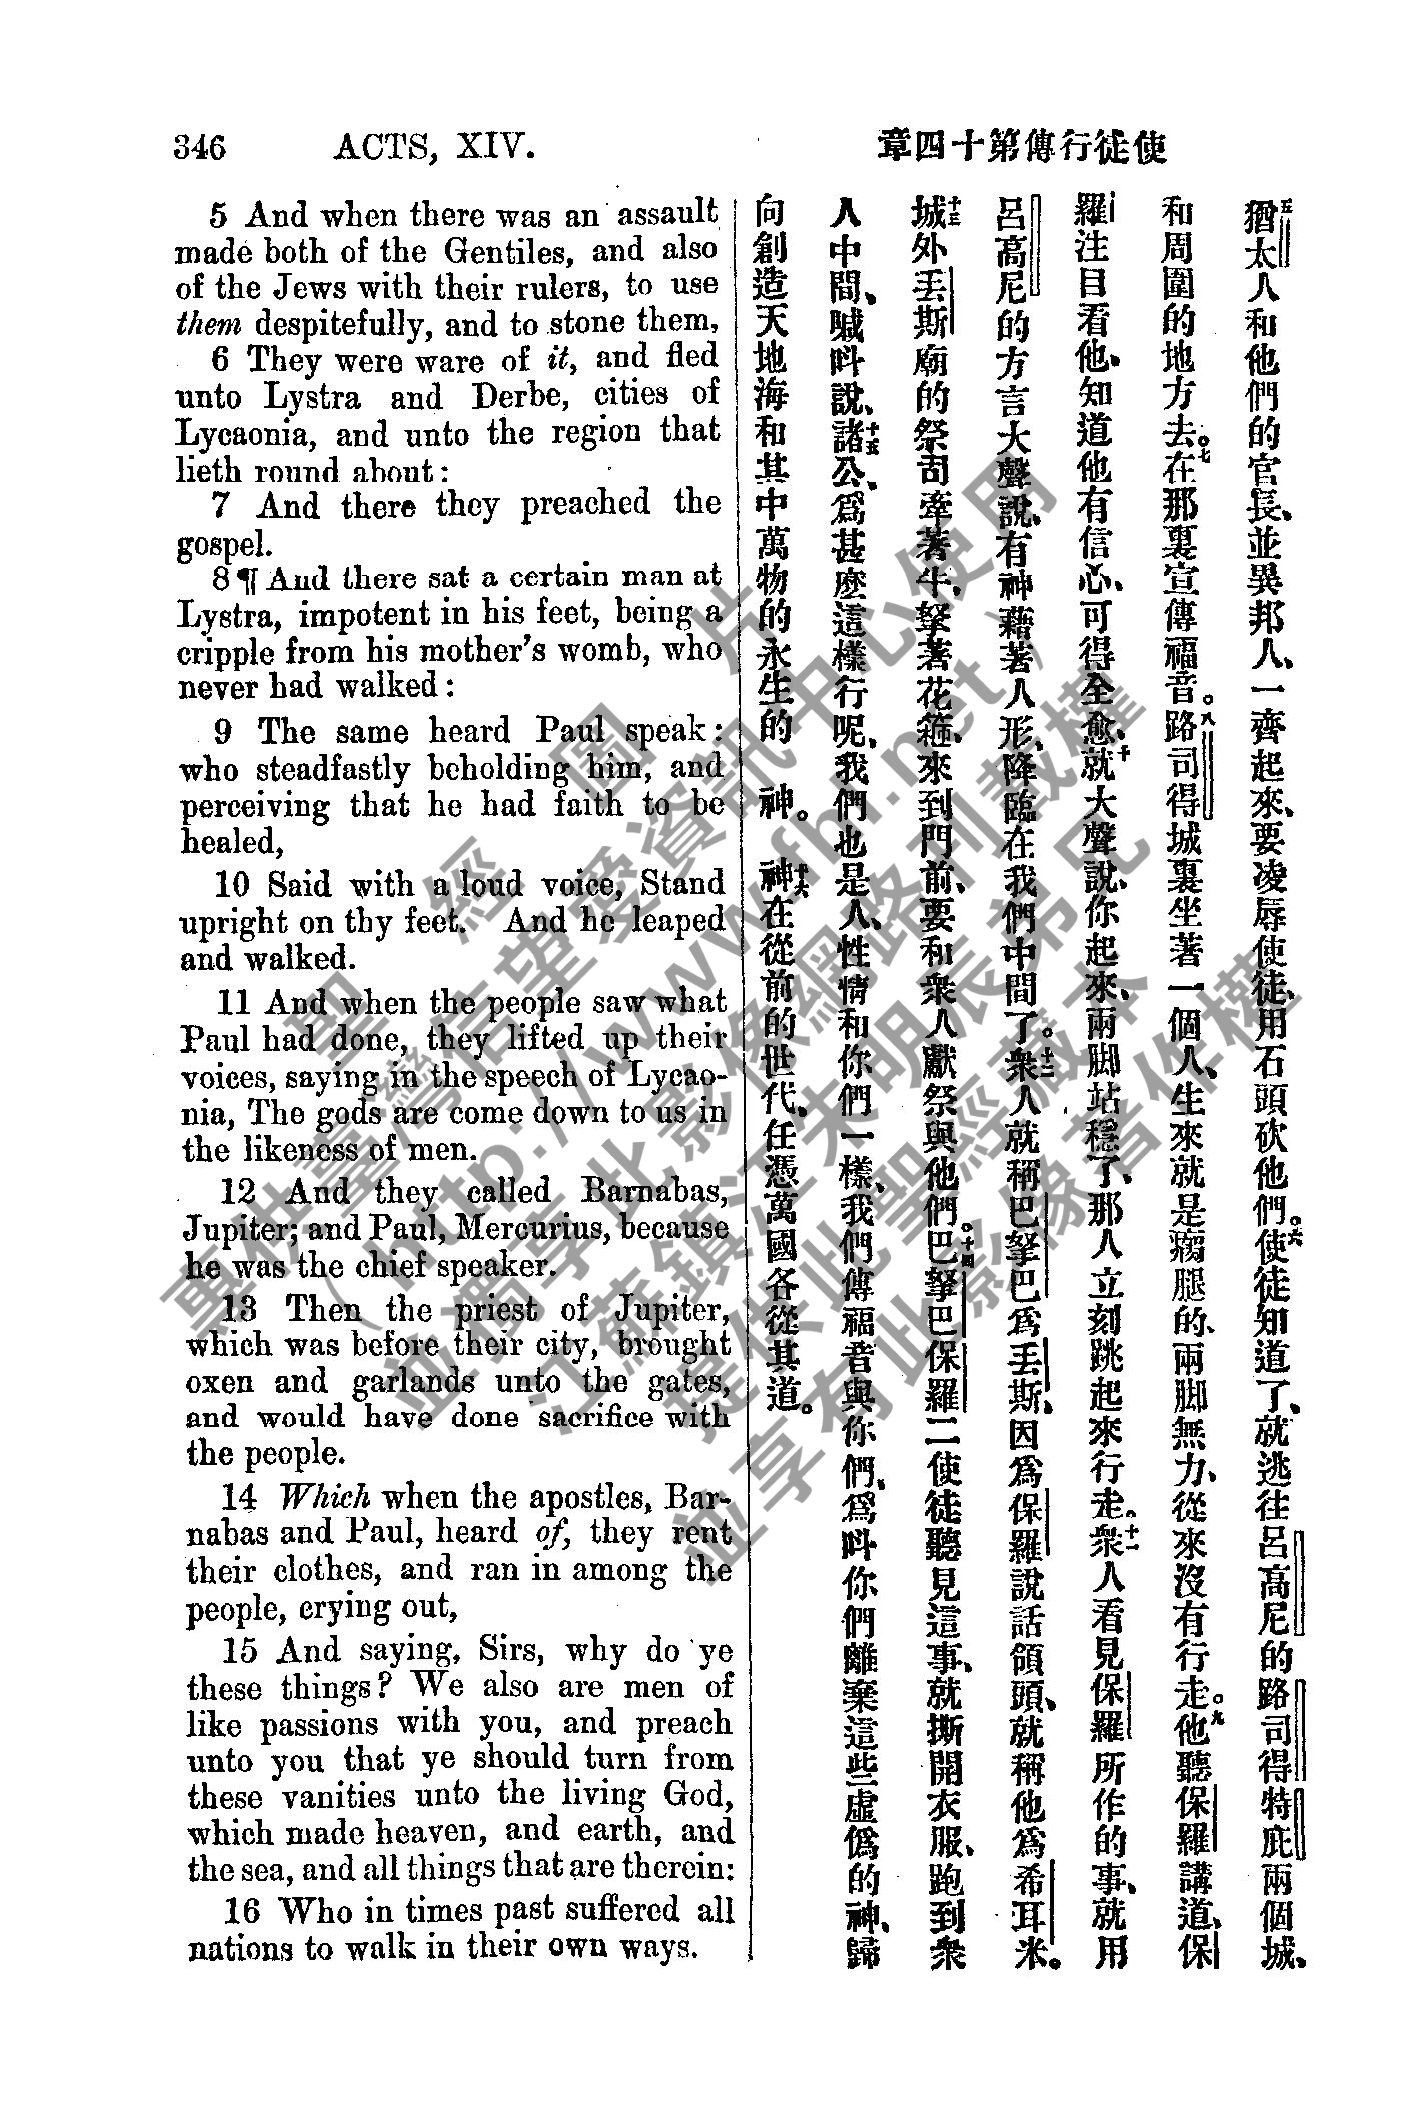 346 ACTS, XIV.
章四十第傳行徒使
5 And when there was an assault
made both of the Gentiles, and also
of the Jews with their rulers, to use
them despitefully, and to stone them,
6 They were ware of it, and fled
unto Lystra and Derbe, cities of
Lycaonia, and unto the region that
lieth round about:
7 And there they preached the
gospel.
8 ¶ And there sat a certain man at
Lystra, impotent in his feet, being a
cripple from his mother's womb, who
never had walked:
9 The same heard Paul speak:
who steadfastly beholding him, and
perceiving that he had faith to be
healed,
10 Said with a loud voice, Stand
upright on thy feet. And he leaped
and walked.
11 And when the people saw what
Paul had done, they lifted up their
voices, saying in the speech of Lycao-
nia, The gods are come down to us in
the likeness of men.
12 And they called Barnabas,
Jupiter; and Paul, Mercurius, because
he was the chief speaker.
13 Then the priest of Jupiter,
which was before their city, brought
oxen and garlands unto the gates,
and would have done sacrifice with
the people.
14 Which when the apostles, Bar-
nabas and Paul, heard of, they rent
their clothes, and ran in among the
people, crying out,
15 And saying, Sirs, why do ye
these things? We also are men of
like passions with you, and preach
unto you that ye should turn from
these vanities unto the living God,
which made heaven, and earth, and
the sea, and all things that are therein:
16 Who in times past suffered all
nations to walk in their own ways.
五猶太人和他們的官長、並異邦人、一齊起來、要凌辱使徒、用石頭砍他們。六使徒知道了、就逃往呂高尼的路司得特庇兩個城、
和周圍的地方去。七在那裏宣傳福音。八路司得城裏坐著一個人、生來就是瘸腿的、兩脚無力、從來沒有行走。九他聽保羅講道、保
羅注目看他、知道他有信心、可得全愈、十就大聲說、你起來、兩脚站穩了、那人立刻跳起來行走。十一衆人看見保羅所作的事、就用
呂高尼的方言大聲說、有神藉著人形、降臨在我們中間了。十二衆人就稱巴拏巴爲丟斯、因爲保羅說話領頭、就稱他爲希耳米。
十三城外丟斯廟的祭司牽著牛、拏著花箍、來到門前、要和衆人獻祭與他們。十四巴拏巴保羅二使徒聽見這事、就撕開衣服、跑到衆
人中間、喊呌說、十五諸公、爲甚麽這樣行呢、我們也是人、性情和你們一樣、我們傳福音與你們、爲呌你們離棄這些虛僞的神、歸
向創造天地海和其中萬物的永生的 神。 十六神在從前的世代、任憑萬國各從其道。
聖經圖片
專供臺灣信望愛資訊中心使用
( http://www.fhl.net )
並獨享此影像網路刊載權
江蘇鎮江朱明辰弟兄
提供此聖經藏本
並享有此影像著作權